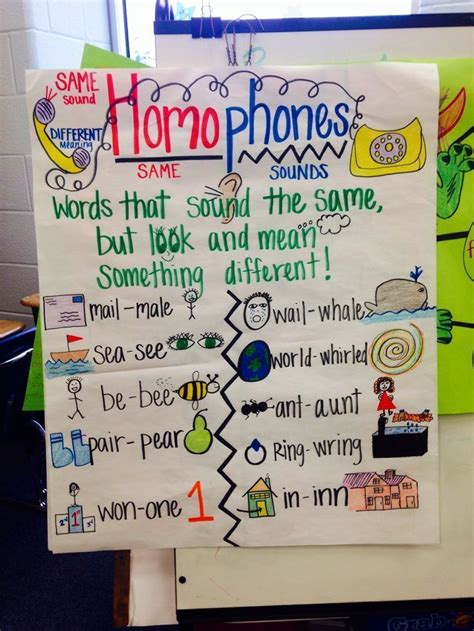 SAME
sound
DIFFERENT
Meaning
HomoPhones
SAME SOUNDS
Words that sound the same,
but look and mean
something different!
mail-male
sea-see
be-bee
pair-pear
won-one 1
2nd 1st 3rd
wail-whale
world-whirled
ant-aunt
Ring-wring
in-inn